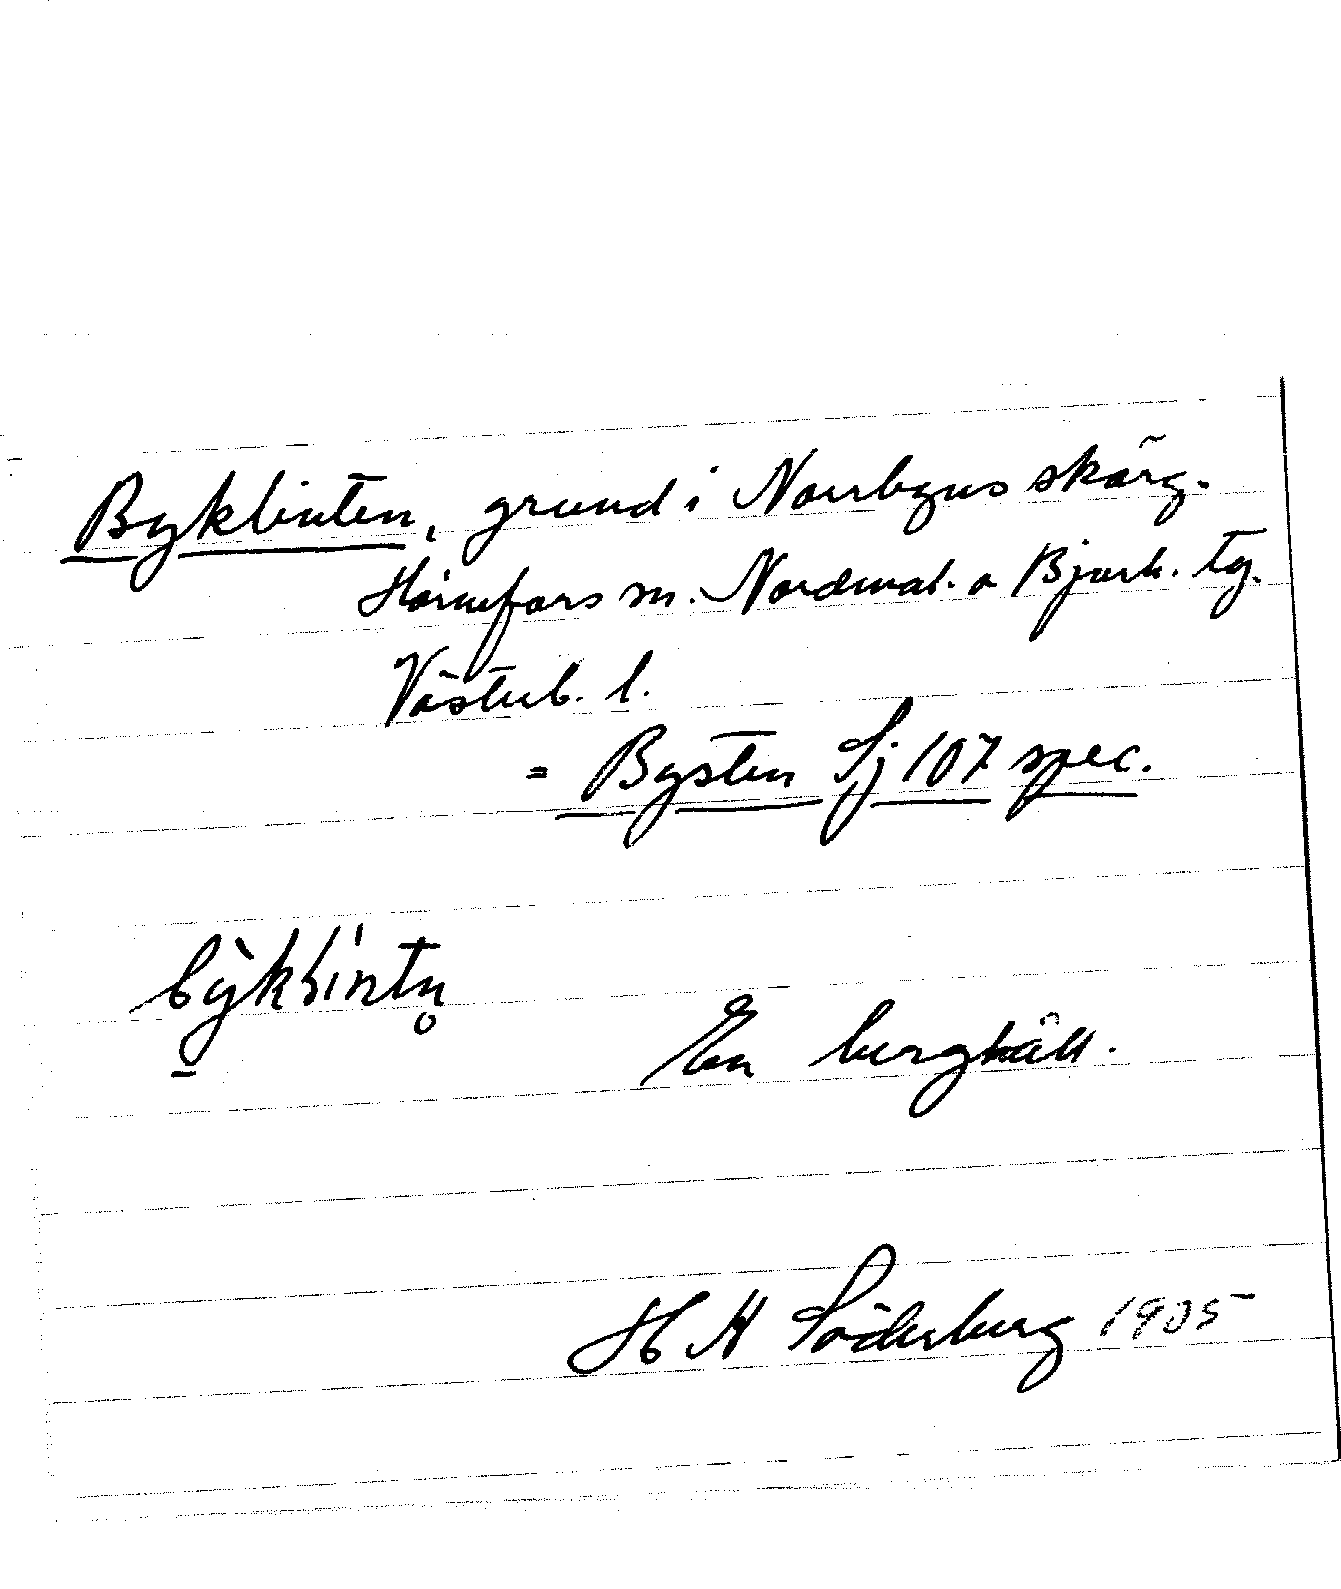 Byklinten, grund i Norrbyns skärg.
Hörnefors sn. Nordmal. o Bjurh. tg.
Västerb. l.
= Bysten Sj 107 spec.
En berghäll.
H N Söderberg 1905